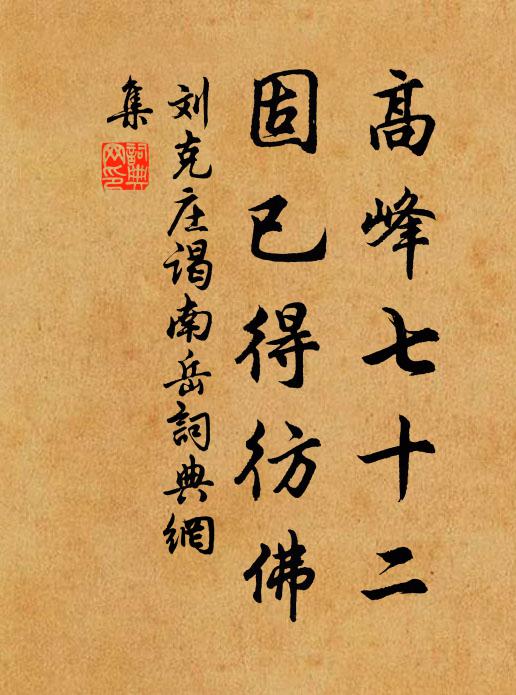 高峰七十二
固已得彷佛
刘克庄谒南岳詞典網
集
詞典網印